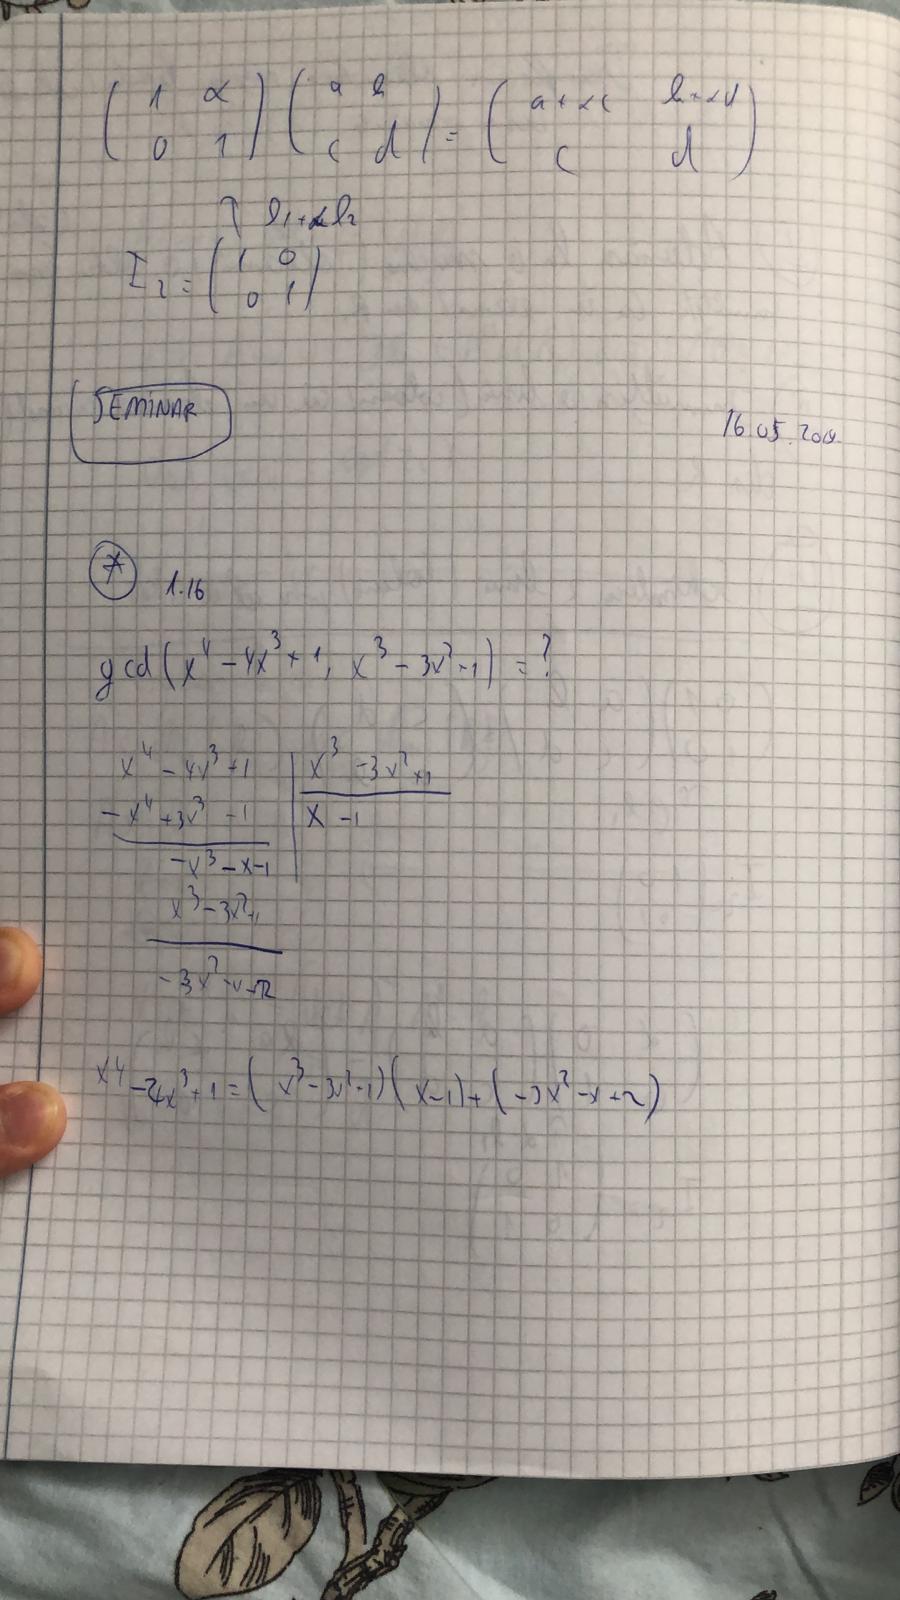 ( 1 α ) ( a b ) = ( a+αc b+αd )
( 0 1 ) ( c d ) ( c d )
↑ l1+αl2
I2 = ( 1 0 )
( 0 1 )
SEMINAR
16.05.
* 1.16
gcd(x^4 - 4x^3 + 1, x^3 - 3x^2 + 1) = ?
x^4 - 4x^3 + 1 | x^3 - 3x^2 + 1
-x^4 + 3x^3 - 1 | x - 1
-x^3 - x - 1
x^3 - 3x^2 + 1
-3x^2 - x + 2
x^4 - 4x^3 + 1 = (x^3 - 3x^2 + 1)(x - 1) + (-3x^2 - x + 2)